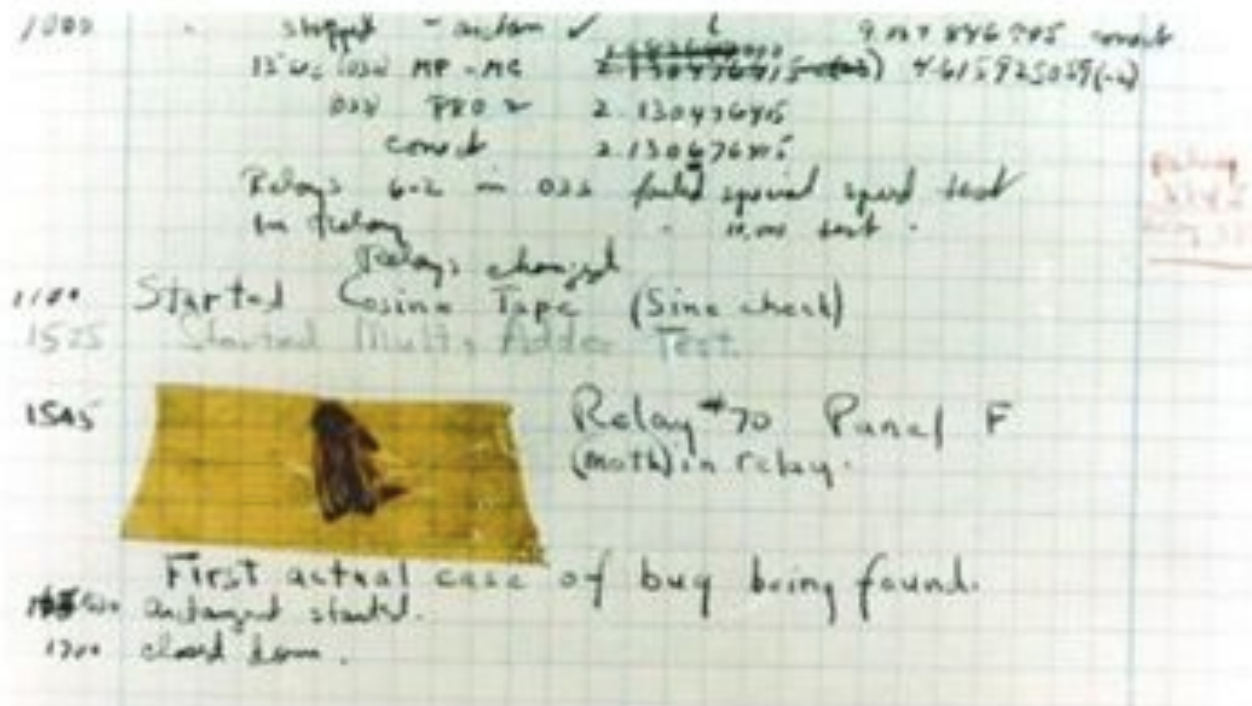 1000 stopped - antan ✓ 9.037 846 995 correct
13" uc (032) MP - MC 4.615925059(-2)
033 PRO 2 2.130476415
correct 2.130676415
Relays 6-2 in 033 failed special speed test
in relay " 10,000 test .
Relays changed
1100 Started Cosine Tape (Sine check)
1525 Started Mult+ Adder Test.
1545 Relay #70 Panel F
(moth) in relay.
First actual case of bug being found.
antangent started.
1700 closed down.